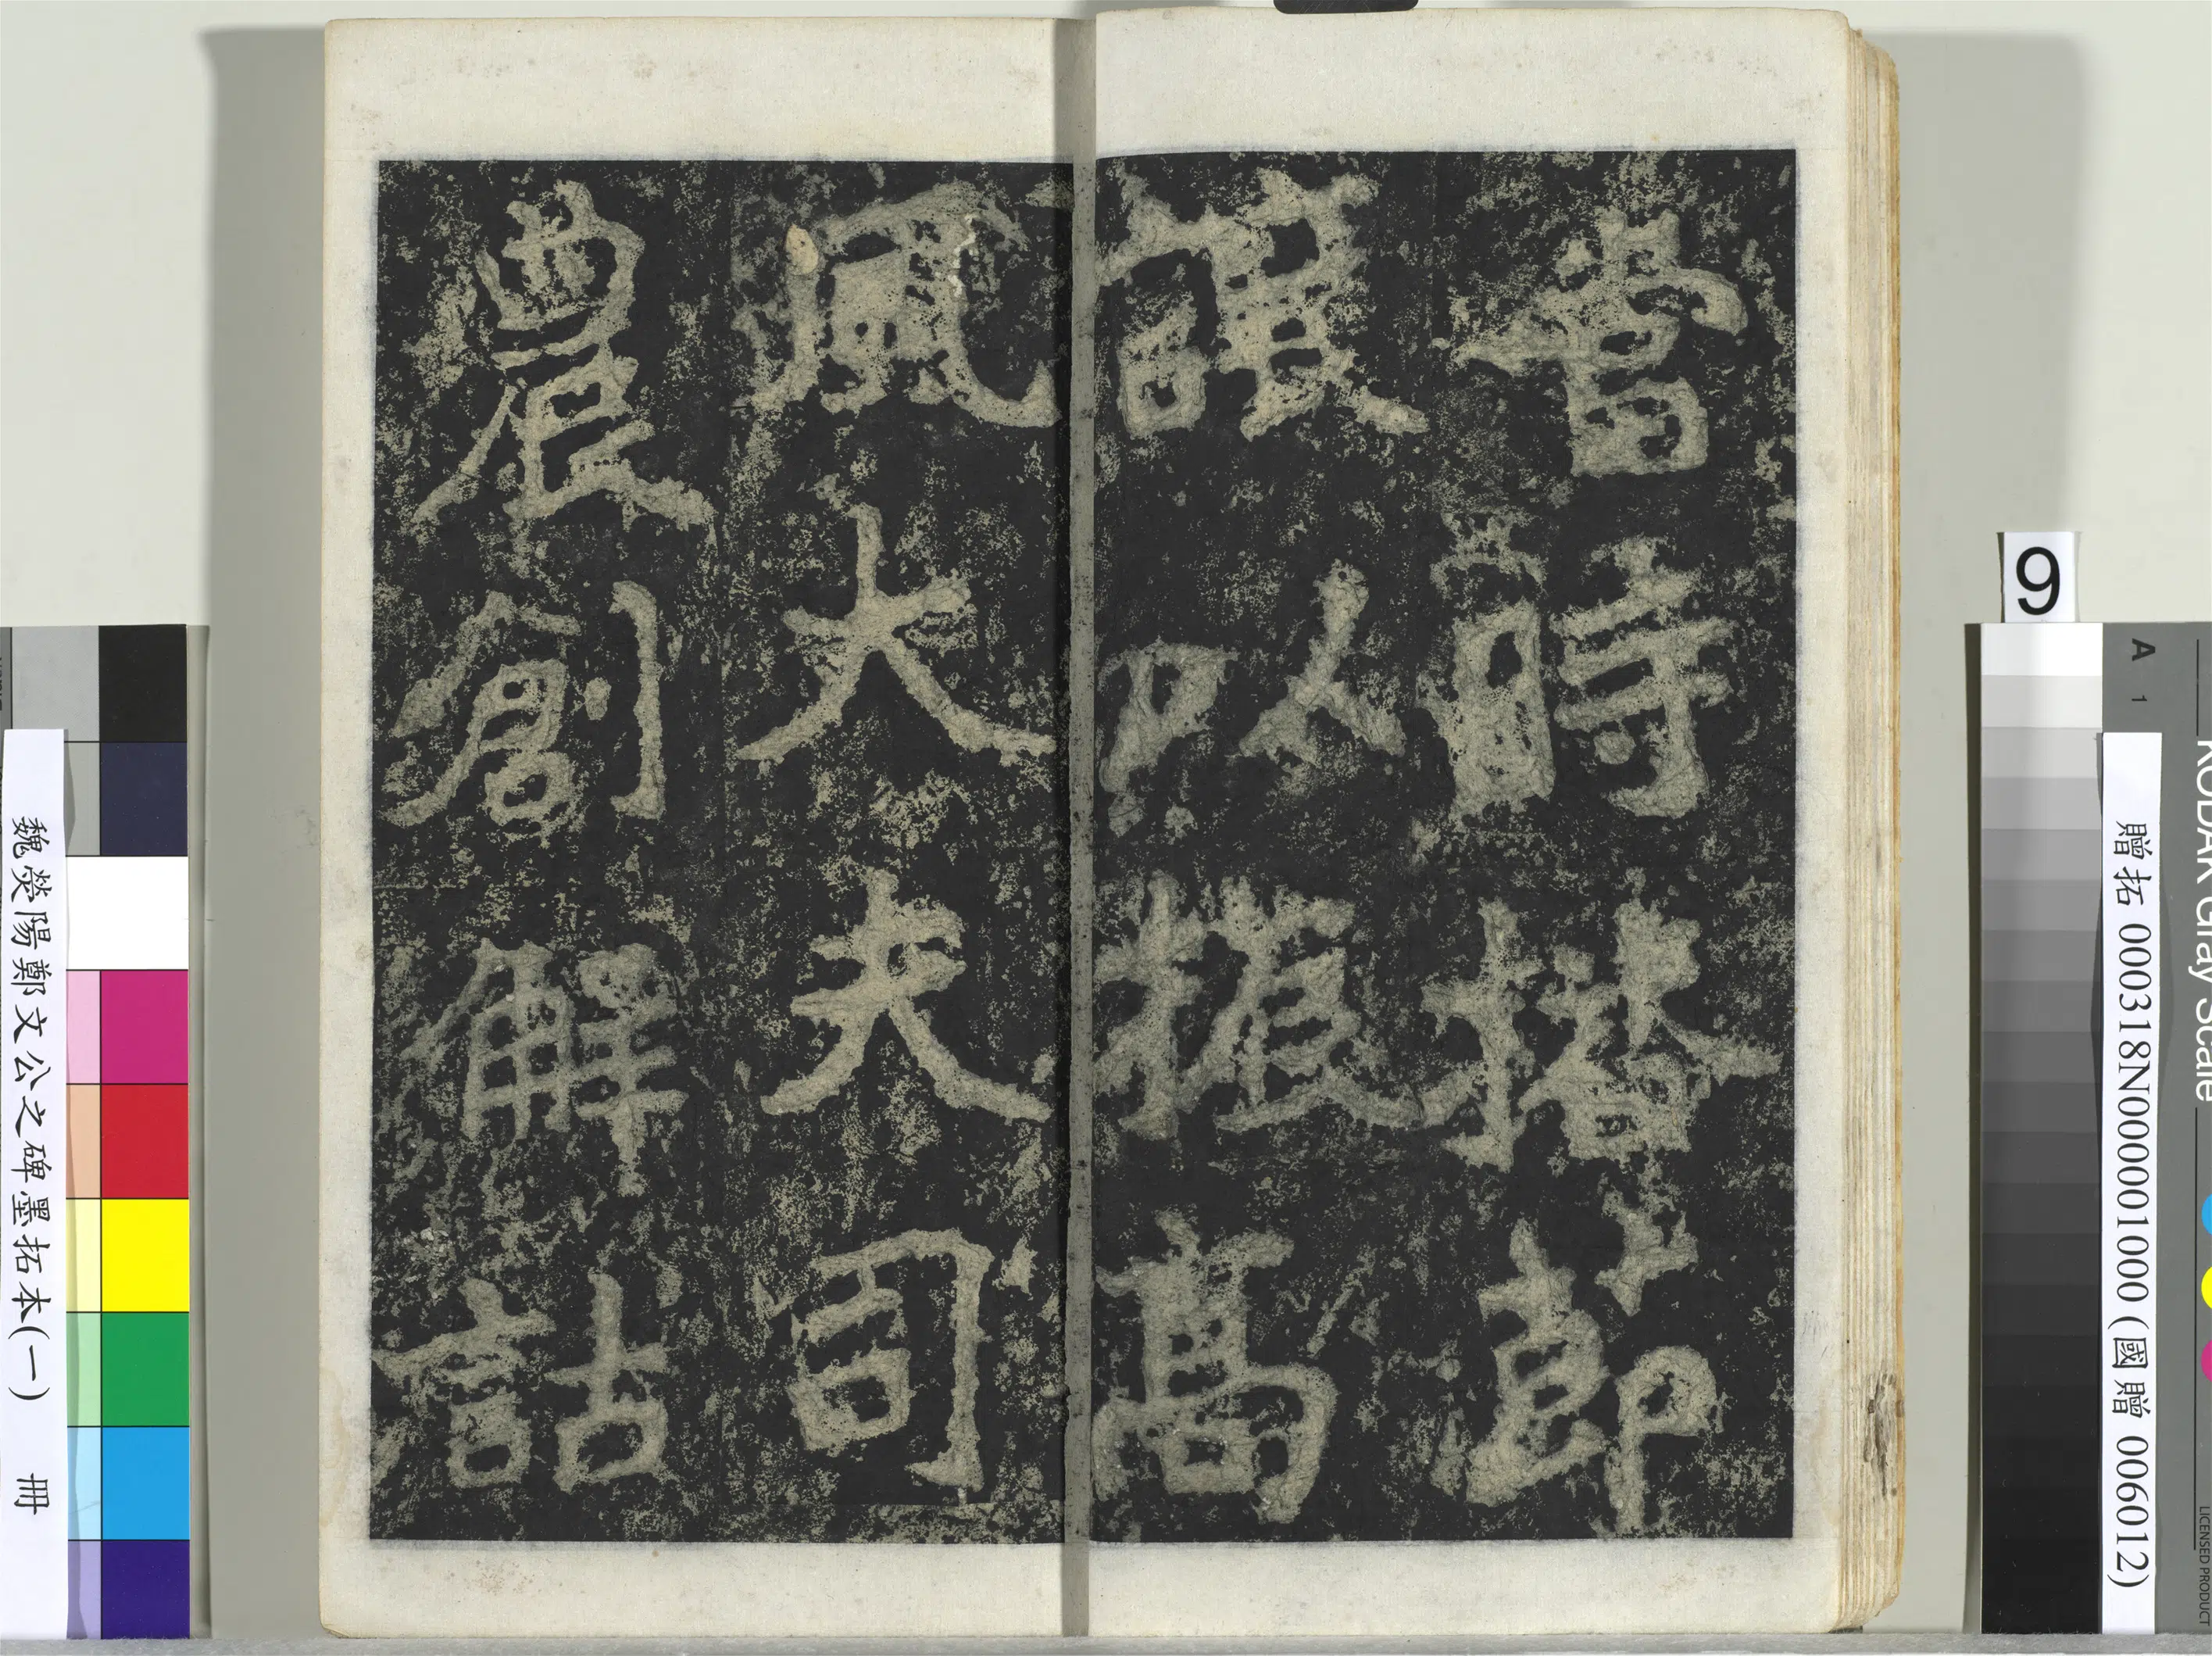 當時播節
讓以振高
風大夫司
農創解詁
9
A 1
KODAK Gray Scale
LICENSED PRODUCT
贈拓 000318N000001000 (國贈 006012)
魏滎陽鄭文公之碑墨拓本(一) 冊